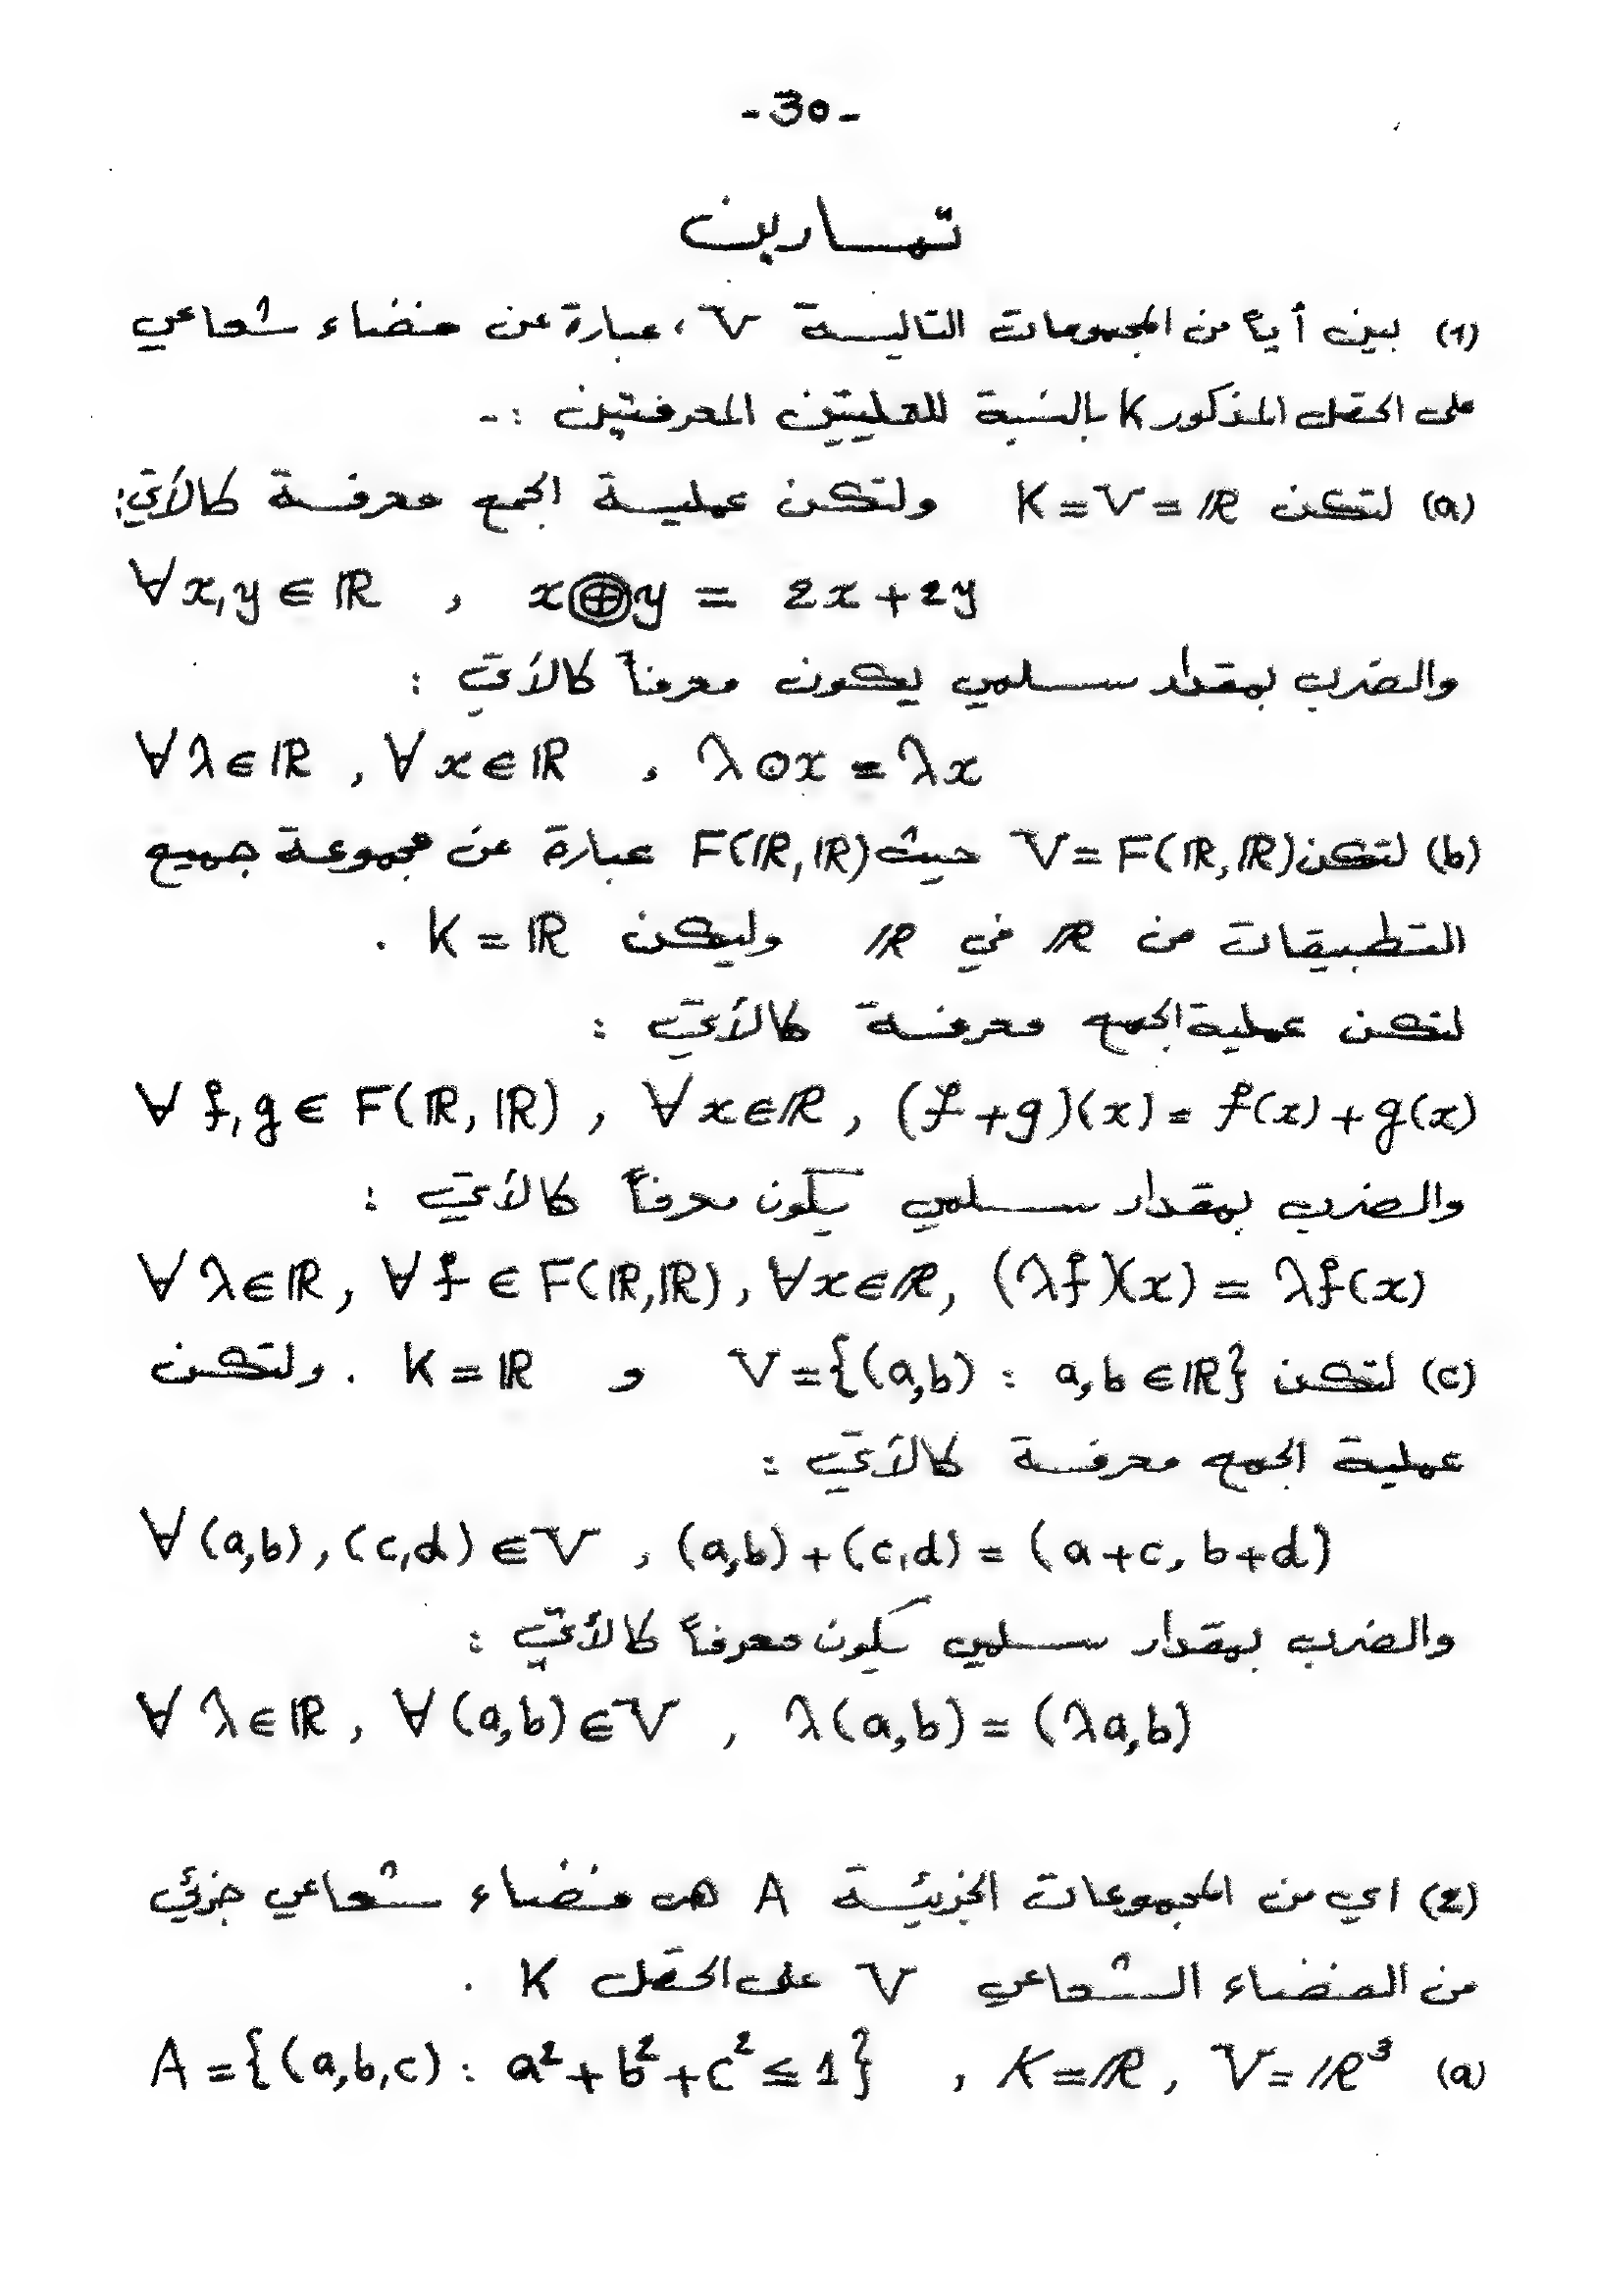 -30-
تمارين
(1) بين أياً من المجموعات التالية V، عبارة عن فضاء شعاعي
على الحقل المذكور K بالنسبة للعمليتين المعرفتين :-
(a) لتكن K = V = ℝ ولتكن عملية الجمع معرفة كالآتي:
∀x,y ∈ ℝ , x⊕y = 2x+2y
والضرب بمقدار سلمي يكون معرفاً كالآتي :
∀λ∈ℝ , ∀x∈ℝ , λ⊙x = λx
(b) لتكن V = F(ℝ,ℝ) حيث F(ℝ,ℝ) عبارة عن مجموعة جميع
التطبيقات من ℝ في ℝ وليكن K = ℝ .
لتكن عملية الجمع معرفة كالآتي :
∀ f,g ∈ F(ℝ,ℝ) , ∀x∈ℝ , (f+g)(x) = f(x)+g(x)
والضرب بمقدار سلمي يكون معرفاً كالآتي :
∀λ∈ℝ, ∀f ∈ F(ℝ,ℝ), ∀x∈ℝ, (λf)(x) = λf(x)
(c) لتكن V = {(a,b) : a,b ∈ℝ} و K = ℝ . ولتكن
عملية الجمع معرفة كالآتي :
∀(a,b), (c,d) ∈ V , (a,b)+(c,d) = (a+c, b+d)
والضرب بمقدار سلمي يكون معرفاً كالآتي :
∀λ∈ℝ, ∀(a,b)∈V , λ(a,b) = (λa,b)
(2) اي من المجموعات الجزئية A هي فضاء شعاعي جزئي
من الفضاء الشعاعي V على الحقل K .
(a) V = ℝ³ , K = ℝ , A = {(a,b,c) : a²+b²+c² ≤ 1}